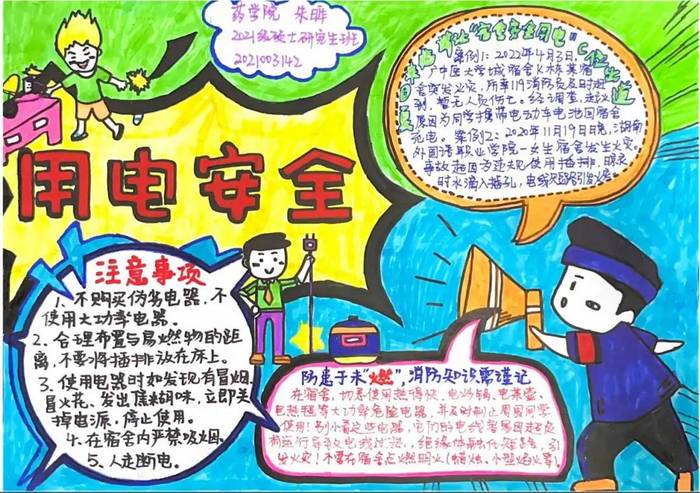 药学院 朱晔
2021级硕士研究生班
2021003142
用电安全
"宿舍安全用电"
案例1：2022年4月3日，
广中医大学城宿舍区K栋某宿
舍突发火灾，所幸119消防员及时赶
到，暂无人员伤亡。经调查，起火
原因为同学携带电动车电池回宿舍
充电。案例2：2020年11月19日晚，湖南
外国语职业学院一女生宿舍发生火灾。
事故起因为违规使用插排，晾衣
时水滴入插孔，电线短路引发火灾
注意事项
1、不购买伪劣电器，不
使用大功率电器。
2、合理布置与易燃物的距
离，不要将插排放在床上。
3、使用电器时如发现有冒烟、
冒火花、发出焦糊味，立即关
掉电源，停止使用。
4、在宿舍内严禁吸烟。
5、人走断电。
防患于未"燃"，消防知识需谨记
在宿舍，切忌使用热得快、电炒锅、电蒸壶、
电热毯等大功率危险电器，并及时制止周围同学
使用！别小看这些电器，它们的电线容易因超负
荷运行导致电线过热，绝缘体融化短路，引
发火灾！不要在宿舍点燃明火（蜡烛、小型焰火等）